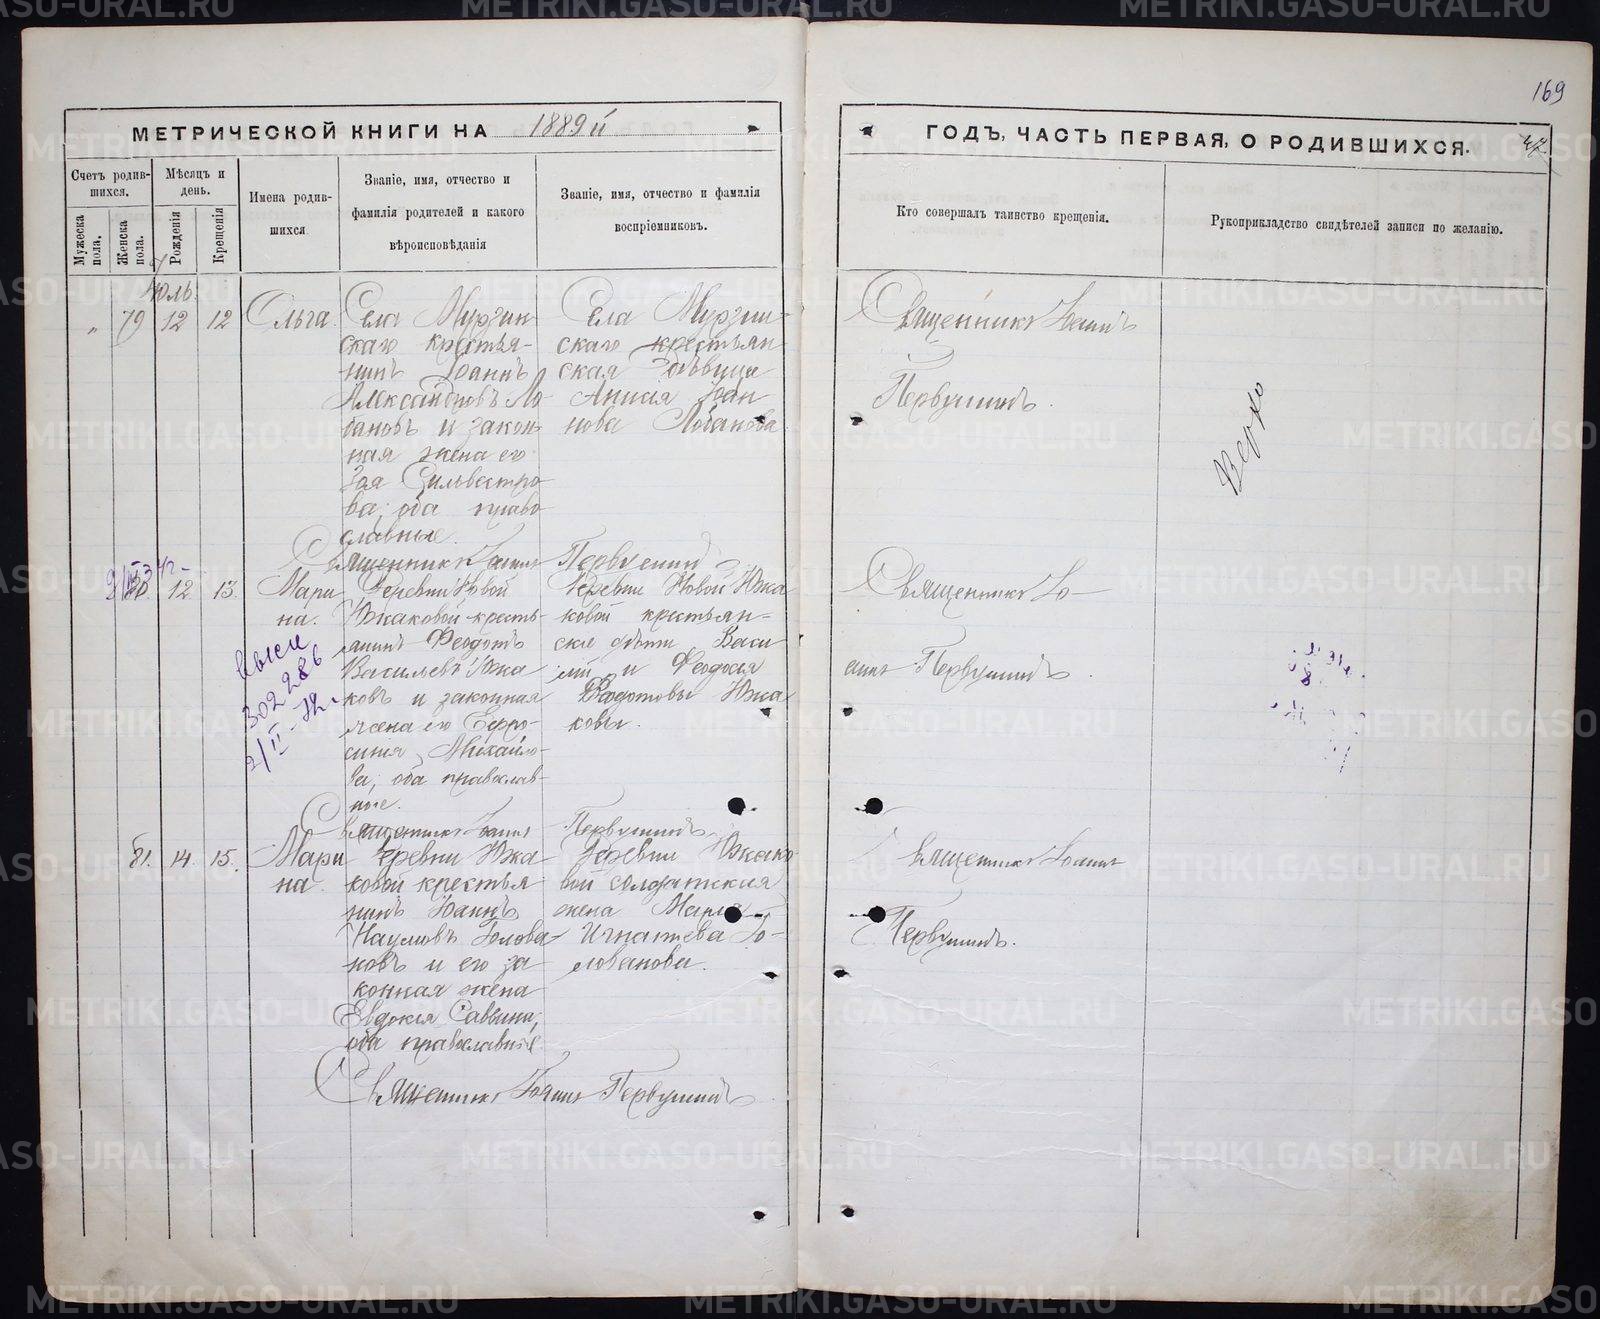 169
МЕТРИЧЕСКОЙ КНИГИ НА 1889й
ГОДЪ, ЧАСТЬ ПЕРВАЯ, О РОДИВШИХСЯ.
Счетъ родив-
шихся.
Мужеска
пола.
Женска
пола.
Мѣсяцъ и
день.
Рожденія
Крещенія
Имена родив-
шихся
Званіе, имя, отчество и
фамилія родителей и какого
вѣроисповѣданія
Званіе, имя, отчество и фамилія
воспріемниковъ.
Кто совершалъ таинство крещенія.
Рукоприкладство свидѣтелей записи по желанію.
Юль.
" 79 12 12 Ольга
Села Мурзин-
скаго крестья-
нинъ Іоаннъ
Александровъ Ло
бановъ и закон-
ная жена его
Зоя Сильвестро-
ва, оба право-
славные.
Села Мурзин-
скаго крестьян-
ская дѣвица
Анисія Іоан
нова Лобанова
Священникъ Іоаннъ
Первушинъ.
Верхо
Священникъ Іоаннъ Первушинъ
80. 12 13. Мари
на.
Деревни Новой
Южаковой кресть-
янинъ Феодотъ
Васильевъ Южа
ковъ и законная
жена его Евфро-
синія Михайло-
ва, оба православ-
ные.
Деревни Новой Южа
ковой крестьян-
ские дѣти Васи
лій и Феодосія
Феодотовы Южа
ковы.
Священникъ Іо-
аннъ Первушинъ.
302286
2/II-72г
Священникъ Іоаннъ Первушинъ
81. 14. 15. Мари
на
Деревни Южа
ковой крестья
нинъ Іоаннъ
Наумовъ Голова
новъ и его за
конная жена
Евдокія Саввина,
оба православные.
Деревни Южако
вой солдатская
жена Марія
Игнатьева Го-
лованова.
Священникъ Іоаннъ
Первушинъ.
Священникъ Іоаннъ Первушинъ
METRIKI.GASO-URAL.RU